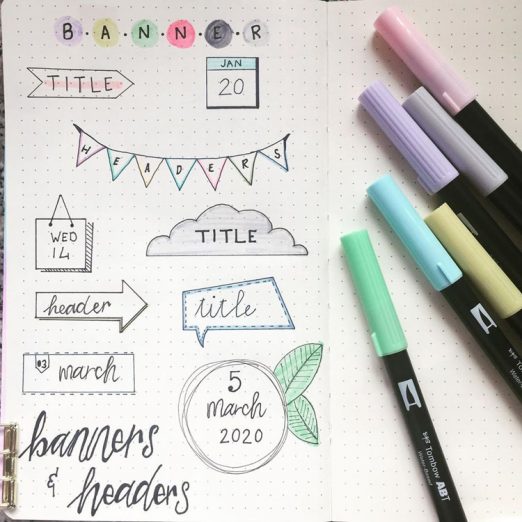 B·A·N·N·E·R
TITLE
JAN
20
HEADERS
WED
14
TITLE
header
title
#3 march
5
march
2020
banners
& headers
Tombow ABT
Tombow ABT